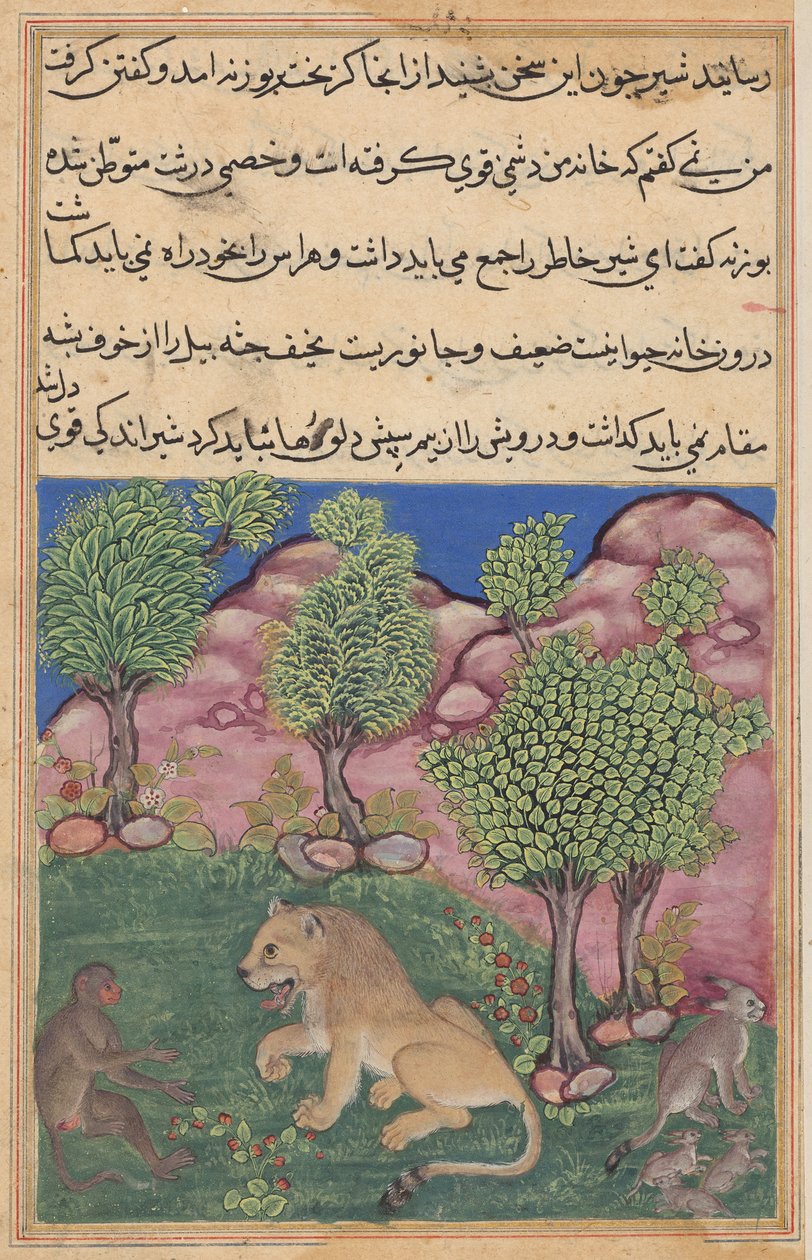 رسانید شیر چون این سخن بشنید از انجا کریخت بر بوزنه امد و کفتن کرفت
من نمی کفتم که خانه من دشمنی قوی کرفته است و خصمی درشت متوطن شده
بوزنه کفت ای شیر خاطر را جمع می باید داشت و هراس را بخود راه نمی باید داد کماشت
درون خانه حیوانیست ضعیف و جانوریست نحیف جثه بیل را از خوف بشه
مقام نمی باید کذاشت و درویش را از بیم سپش دلق رها نباید کرد شیر اندکی قوی دل شد